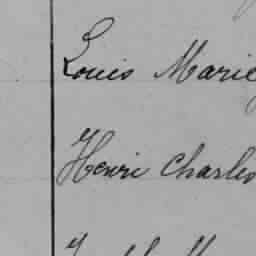 Louis Marie
Henri Charles